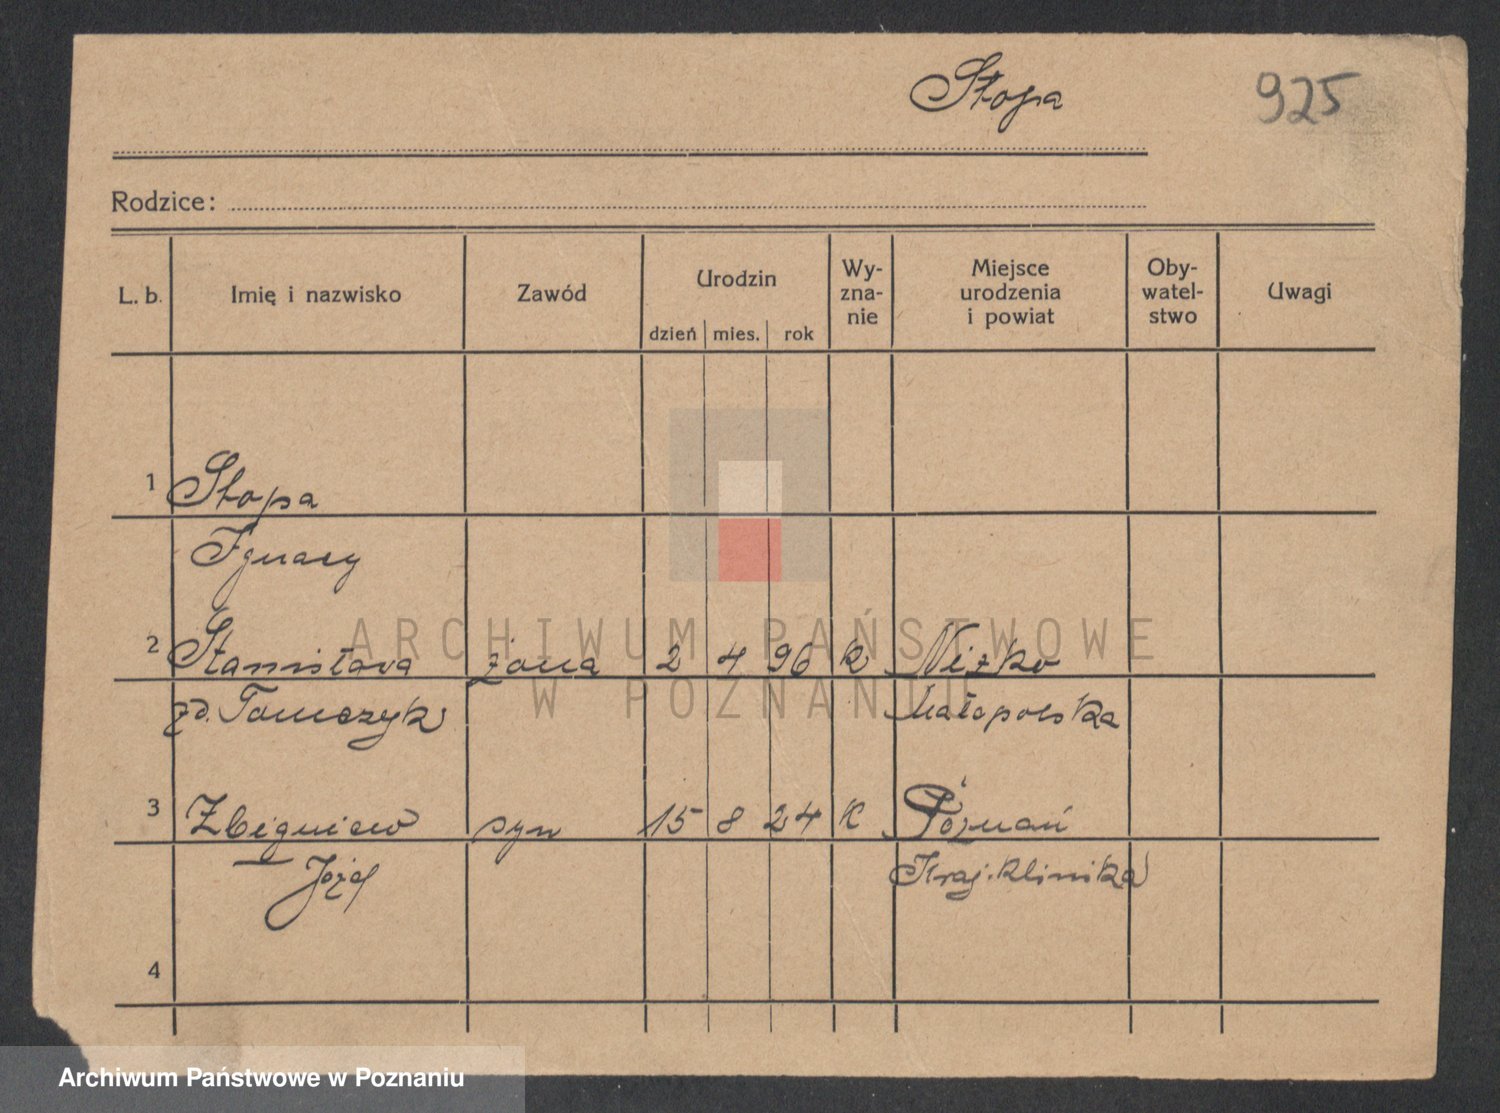 Stopa 925
Rodzice:
L. b. Imię i nazwisko Zawód Urodzin dzień mies. rok Wy-zna-nie Miejsce urodzenia i powiat Oby-watel-stwo Uwagi
1 Stopa
Ignacy
2 Stanisława żona 2 4 96 k Nizko
zd. Tomczyk Małopolska
3 Zbigniew syn 15 8 24 k Poznań
Józef Kraj. klinika
4
ARCHIWUM PAŃSTWOWE
W POZNANIU
Archiwum Państwowe w Poznaniu